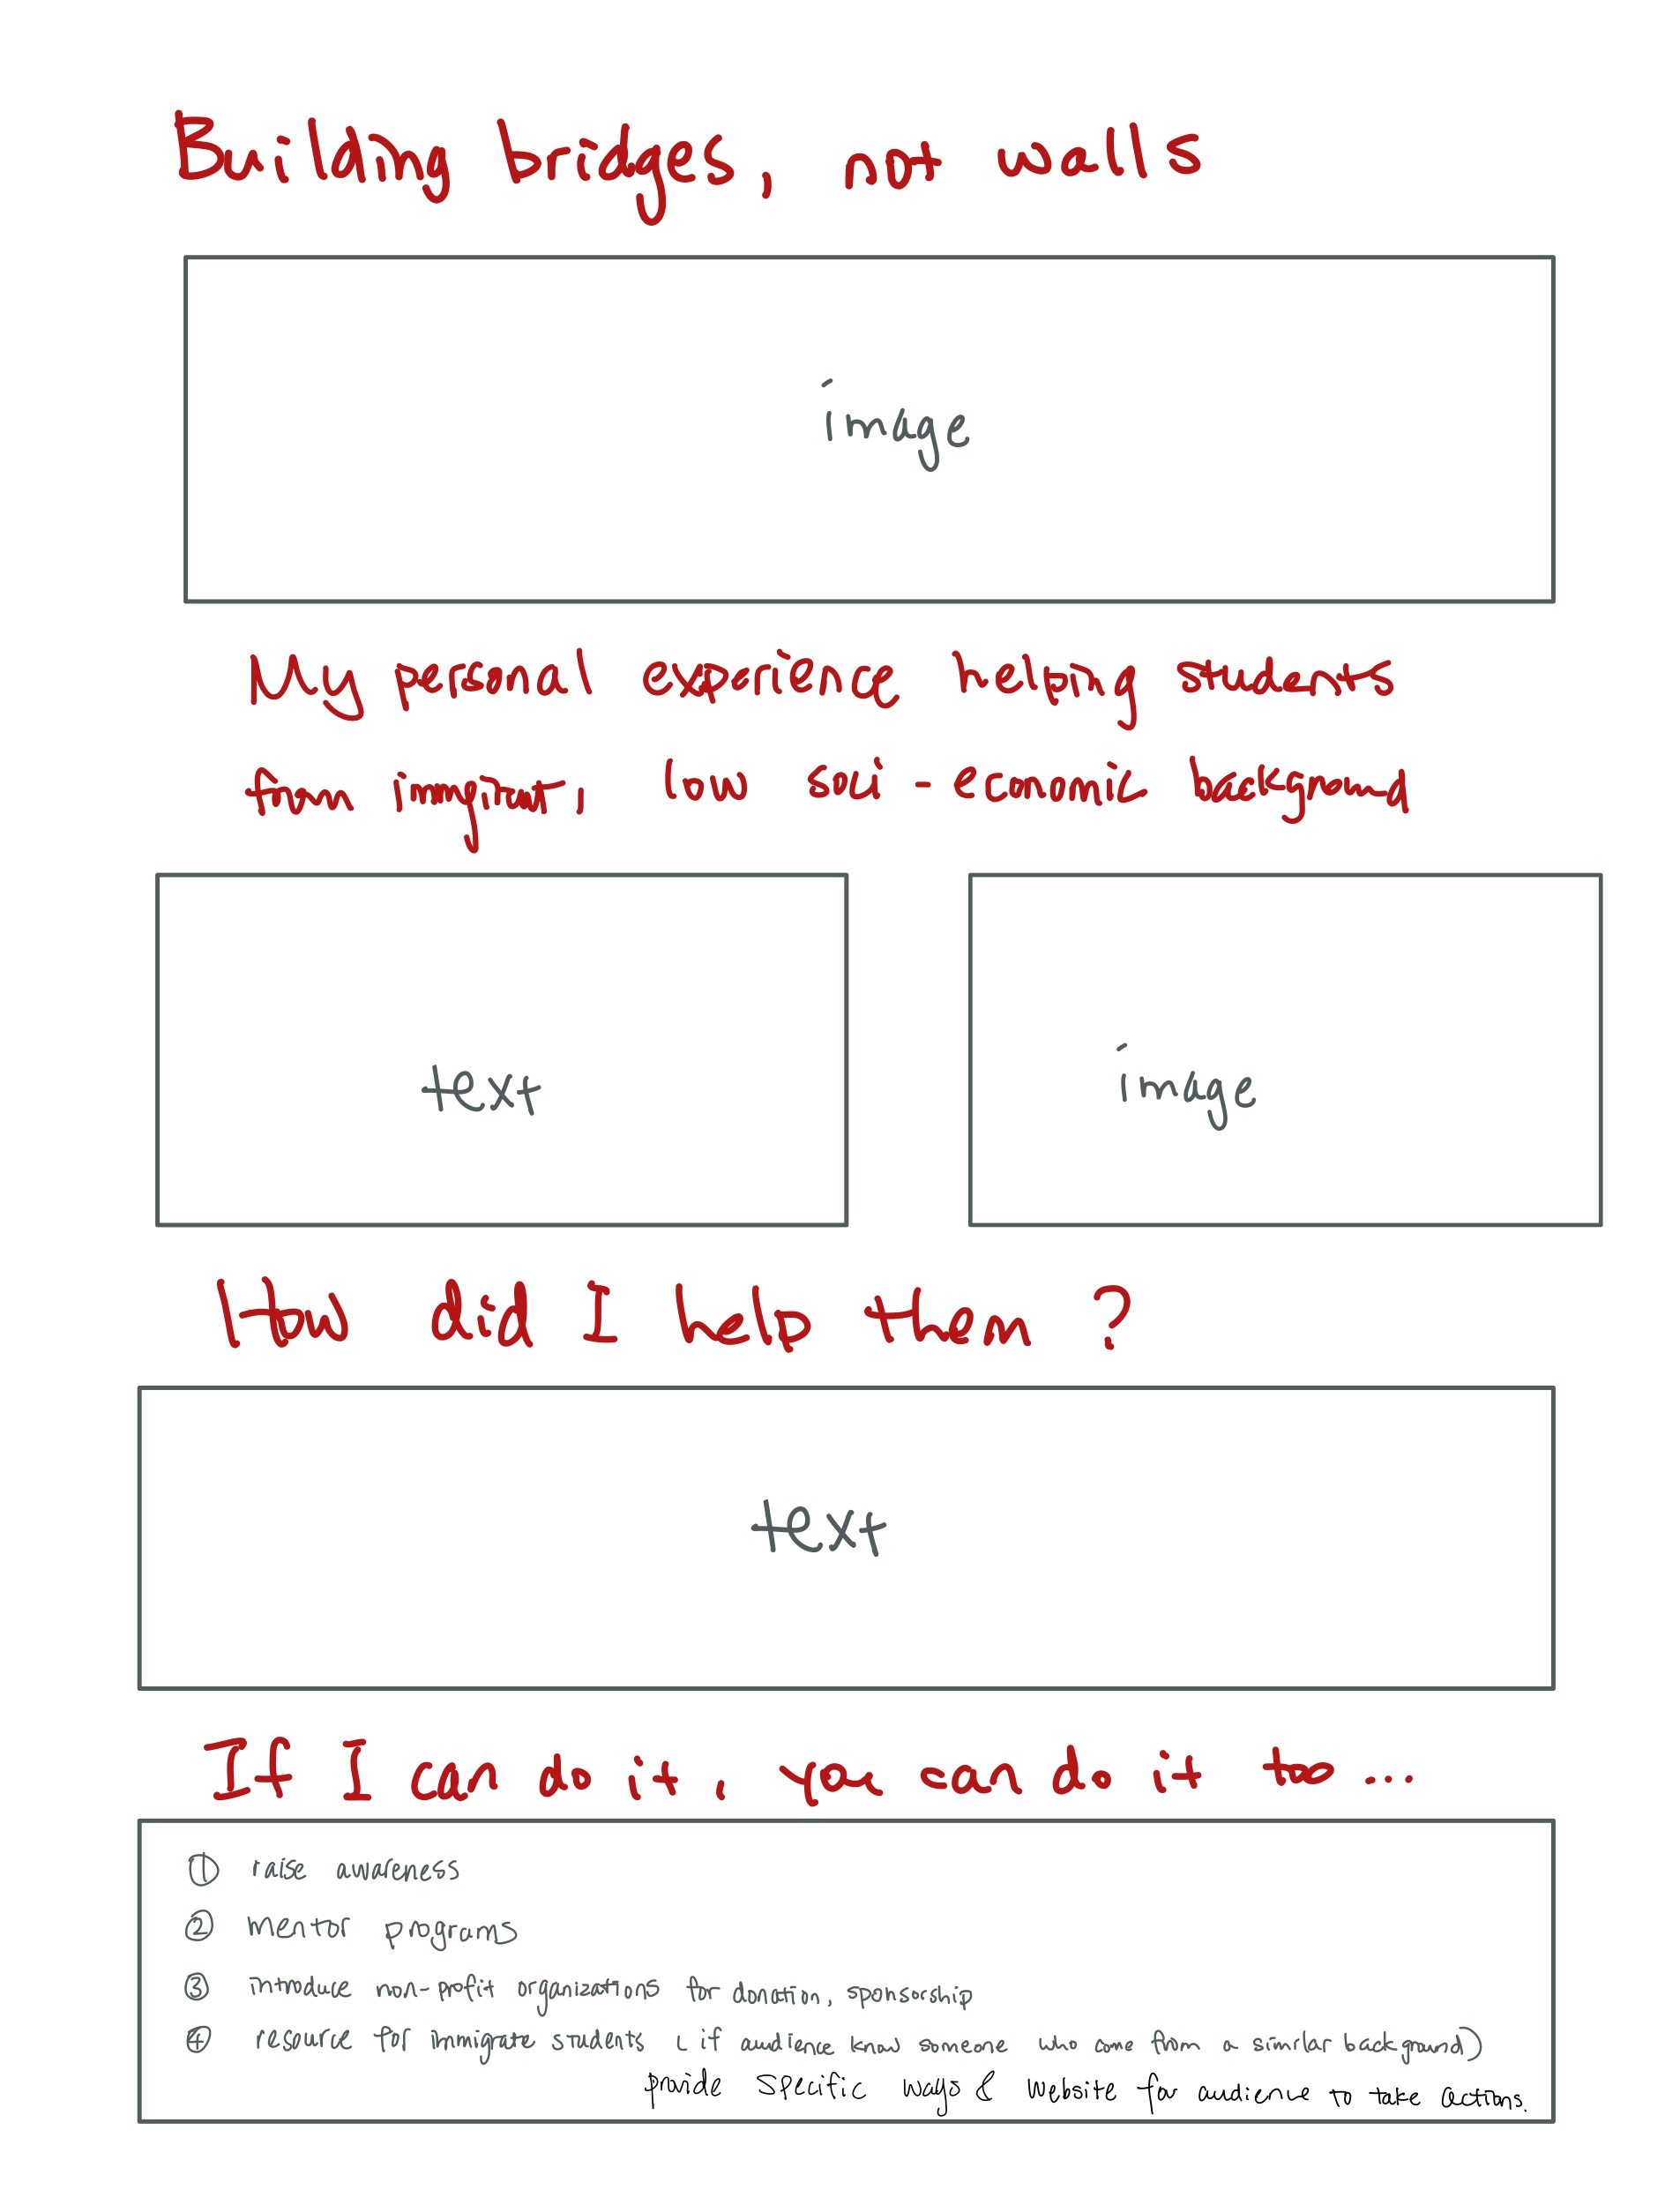 Building bridges, not walls
image
My personal experience helping students
from immgirant, low soci-economic background
text
image
How did I help them ?
text
If I can do it, you can do it too...
① raise awareness
② mentor programs
③ introduce non-profit organizations for donation, sponsorship
④ resource for immigrate students ( if audience know someone who come from a similar background)
provide specific ways & website for audience to take actions.